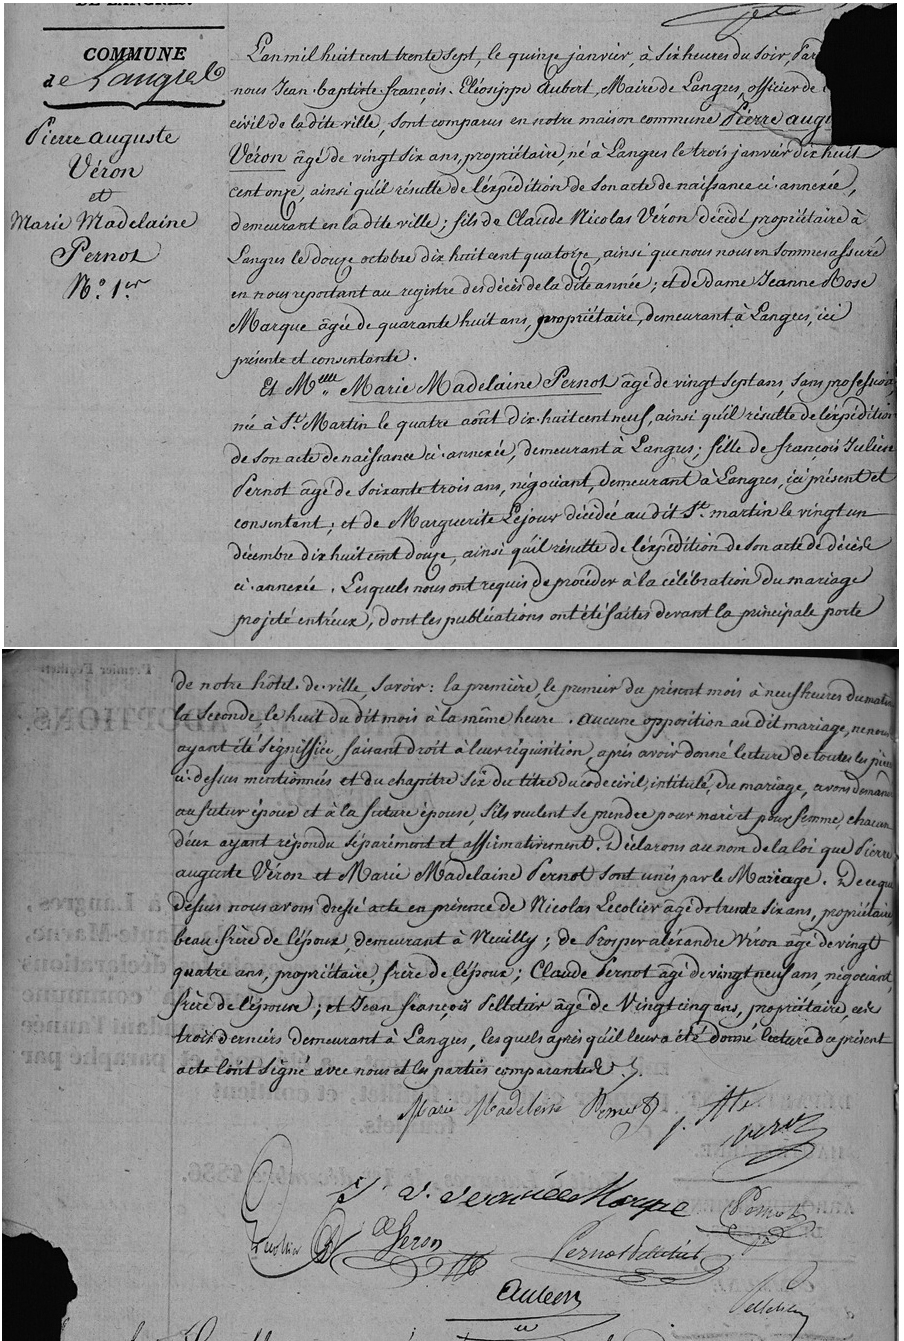 COMMUNE
de Langres
Pierre auguste
Véron
et
Marie Madelaine
Pernot
N.º 1.er
L'an mil huit cent trente sept, le quinze janvier, à six heures du soir, Par
nous Jean-baptiste françois-Eléosippe Aubert, Maire de Langres, officier de
civil de la dite ville, sont comparus en notre maison commune Pierre augu
Véron âgé de vingt six ans, propriétaire né à Langres le trois janvier dix huit
cent onze, ainsi qu'il résulte de l'expédition de son acte de naissance ci-annexée,
demeurant en la dite ville; fils de Claude Nicolas Véron décédé propriétaire à
Langres le douze octobre dix huit cent quatorze, ainsi que nous nous en sommes assuré
en nous reportant au registre des décès de la dite année; et de dame Jeanne Rose
Marque âgée de quarante huit ans, propriétaire, demeurant à Langres, ici
présente et consentante.
Et M.elle Marie Madelaine Pernot âgé de vingt sept ans, sans profession,
né à St. Martin le quatre août dix-huit cent neuf, ainsi qu'il résulte de l'expédition
de son acte de naissance ci-annexée, demeurant à Langres; fille de françois Julien
Pernot âgé de soixante trois ans, négociant, demeurant à Langres, ici présent et
consentant; et de Marguerite Lejour décédée au dit St. martin le vingt un
décembre dix huit cent douze, ainsi qu'il résulte de l'expédition de son acte de décès
ci-annexée. Lesquels nous ont requis de procéder à la célébration du mariage
projeté entr'eux, dont les publications ont été faites devant la principale porte
de notre hôtel-de-ville, savoir: la première, le premier du présent mois à neuf heures du matin
la seconde, le huit du dit mois à la même heure. aucune opposition au dit mariage, ne nous
ayant été signiffiée, faisant droit à leur réquisition, après avoir donné lecture de toutes les pièces
ci-dessus mentionnées et du chapitre six du titre du code civil, intitulé, du mariage, avons demandé
au futur époux et à la future épouse, s'ils veulent se prendre pour mari et pour femme, chacun
d'eux ayant répondu séparément et affirmativement. Déclarons au nom de la loi que Pierre
auguste Véron et Marie Madelaine Pernot sont unis par le Mariage. De ce que
dessus nous avons dressé acte en présence de Nicolas Lecolier âgé de trente six ans, propriétaire,
beau-frère de l'époux demeurant à Neuilly; de Prosper aléxandre Véron âgé de vingt
quatre ans, propriétaire, frère de l'époux; Claude Pernot âgé de vingt neuf ans, négociant,
frère de l'épouse; et Jean françois Pelletier âgé de Vingt cinq ans, propriétaire, ces
trois derniers demeurant à Langres, lesquels après qu'il leur a été donné lecture du présent
acte l'ont signé avec nous et les parties comparantes.
Marie Madeleine Pernot
veron
J. R. veron née Marque Pernot
Lecollier Veron Pernot
Aubert Pelletier